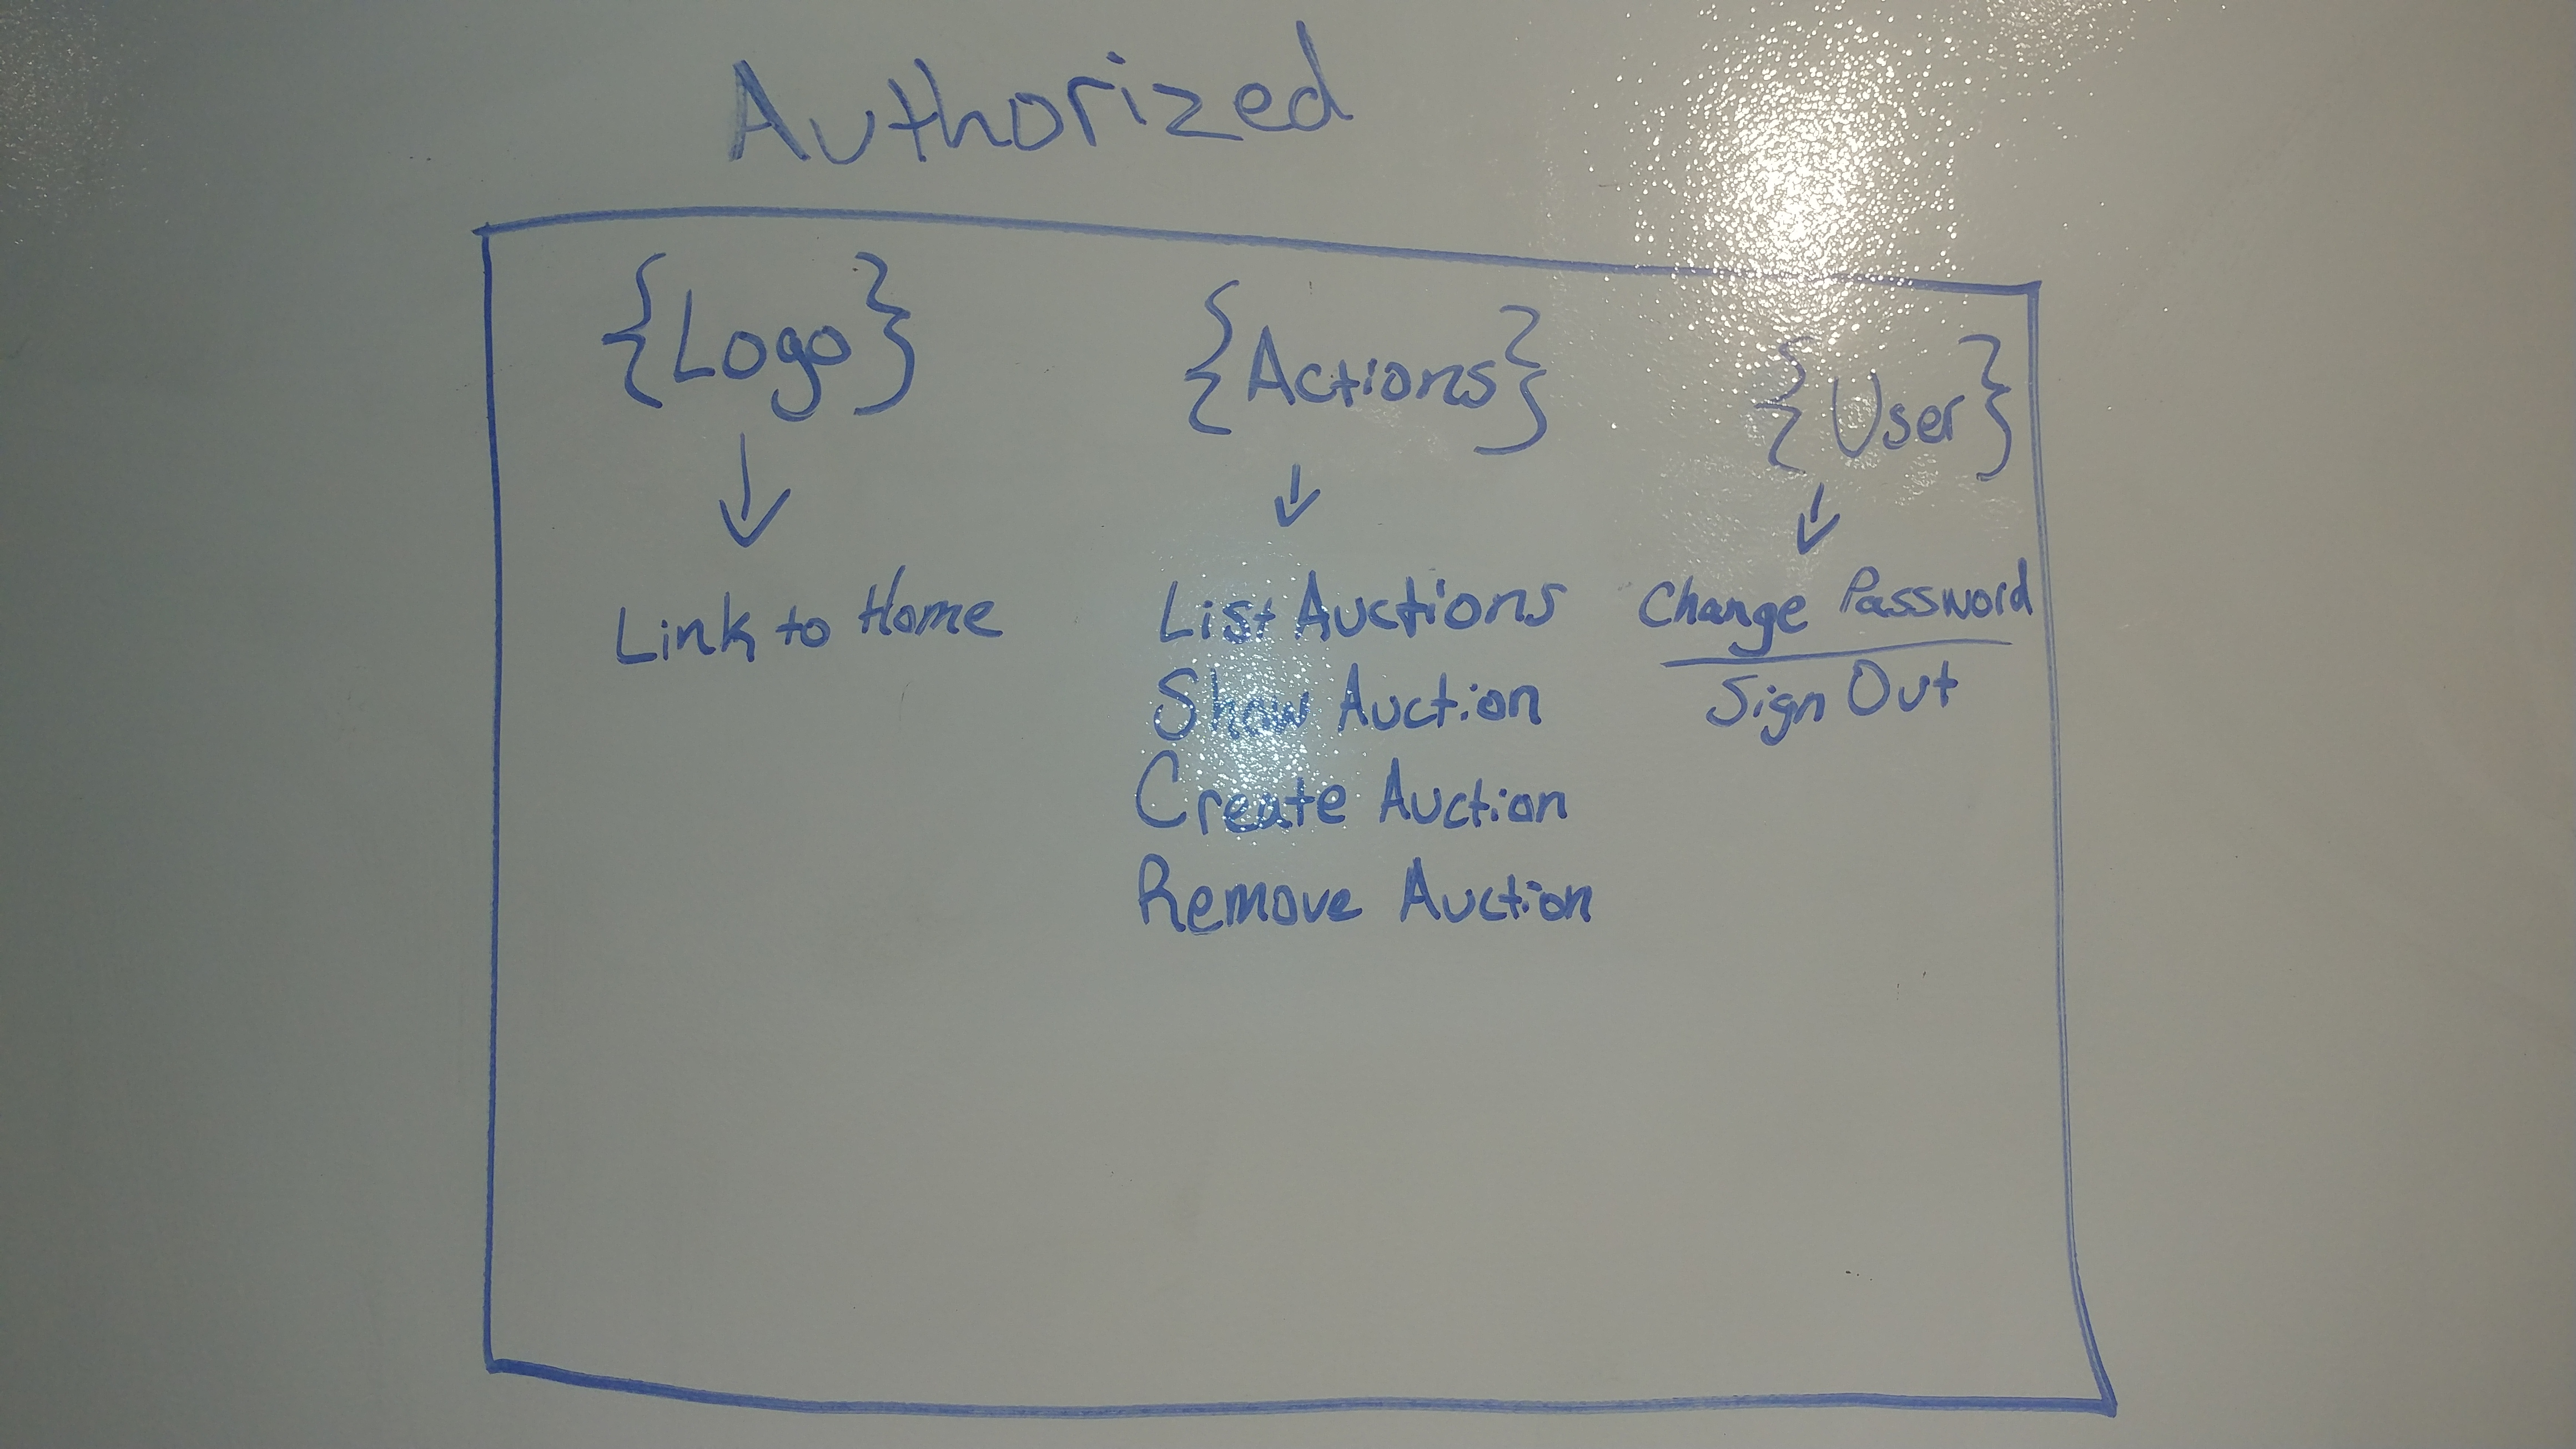 Authorized
{Logo} {Actions} {User}
Link to Home
List Auctions
Show Auction
Create Auction
Remove Auction
Change Password
Sign Out